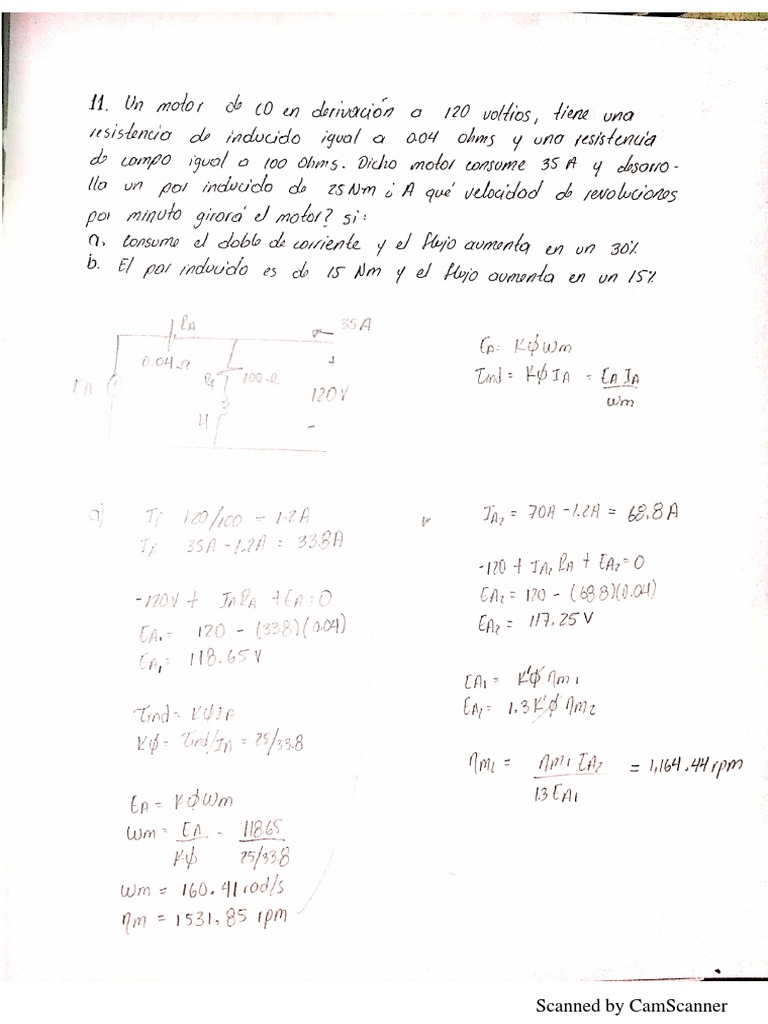 11. Un motor de CD en derivación a 120 voltios, tiene una
resistencia de inducido igual a 0.04 ohms y una resistencia
de campo igual a 100 Ohms. Dicho motor consume 35 A y desarro-
lla un par inducido de 25 Nm ¿ A qué velocidad de revoluciones
por minuto girará el motor? si:
a. Consume el doble de corriente y el flujo aumenta en un 30%
b. El par inducido es de 15 Nm y el flujo aumenta en un 15%
RA
35A
0.04Ω
Rf
100Ω
EA
120V
+
-
EA: Kφwm
Tind = KφIA = EA IA
wm
a) Ti 120/100 = 1.2A
Ti 35A-1.2A = 33.8A
-120V + IARA + EA=0
EA1= 120 - (33.8)(0.04)
EA1= 118.65V
Tind= KφIA
Kφ= Tind/IA = 25/33.8
EA = KφWm
Wm = EA = 118.65
Kφ 25/33.8
Wm = 160.41 rad/s
ηm = 1531,85 rpm
IA2 = 70A -1.2A = 68.8A
-120 + IA2 RA + EA2=0
EA2= 120 - (68.8)(0.04)
EA2= 117.25V
EA1= K'φ ηm1
EA2= 1.3K'φ ηm2
ηm2 = ηm1 EA2 = 1,164.44rpm
1.3 EA1
Scanned by CamScanner